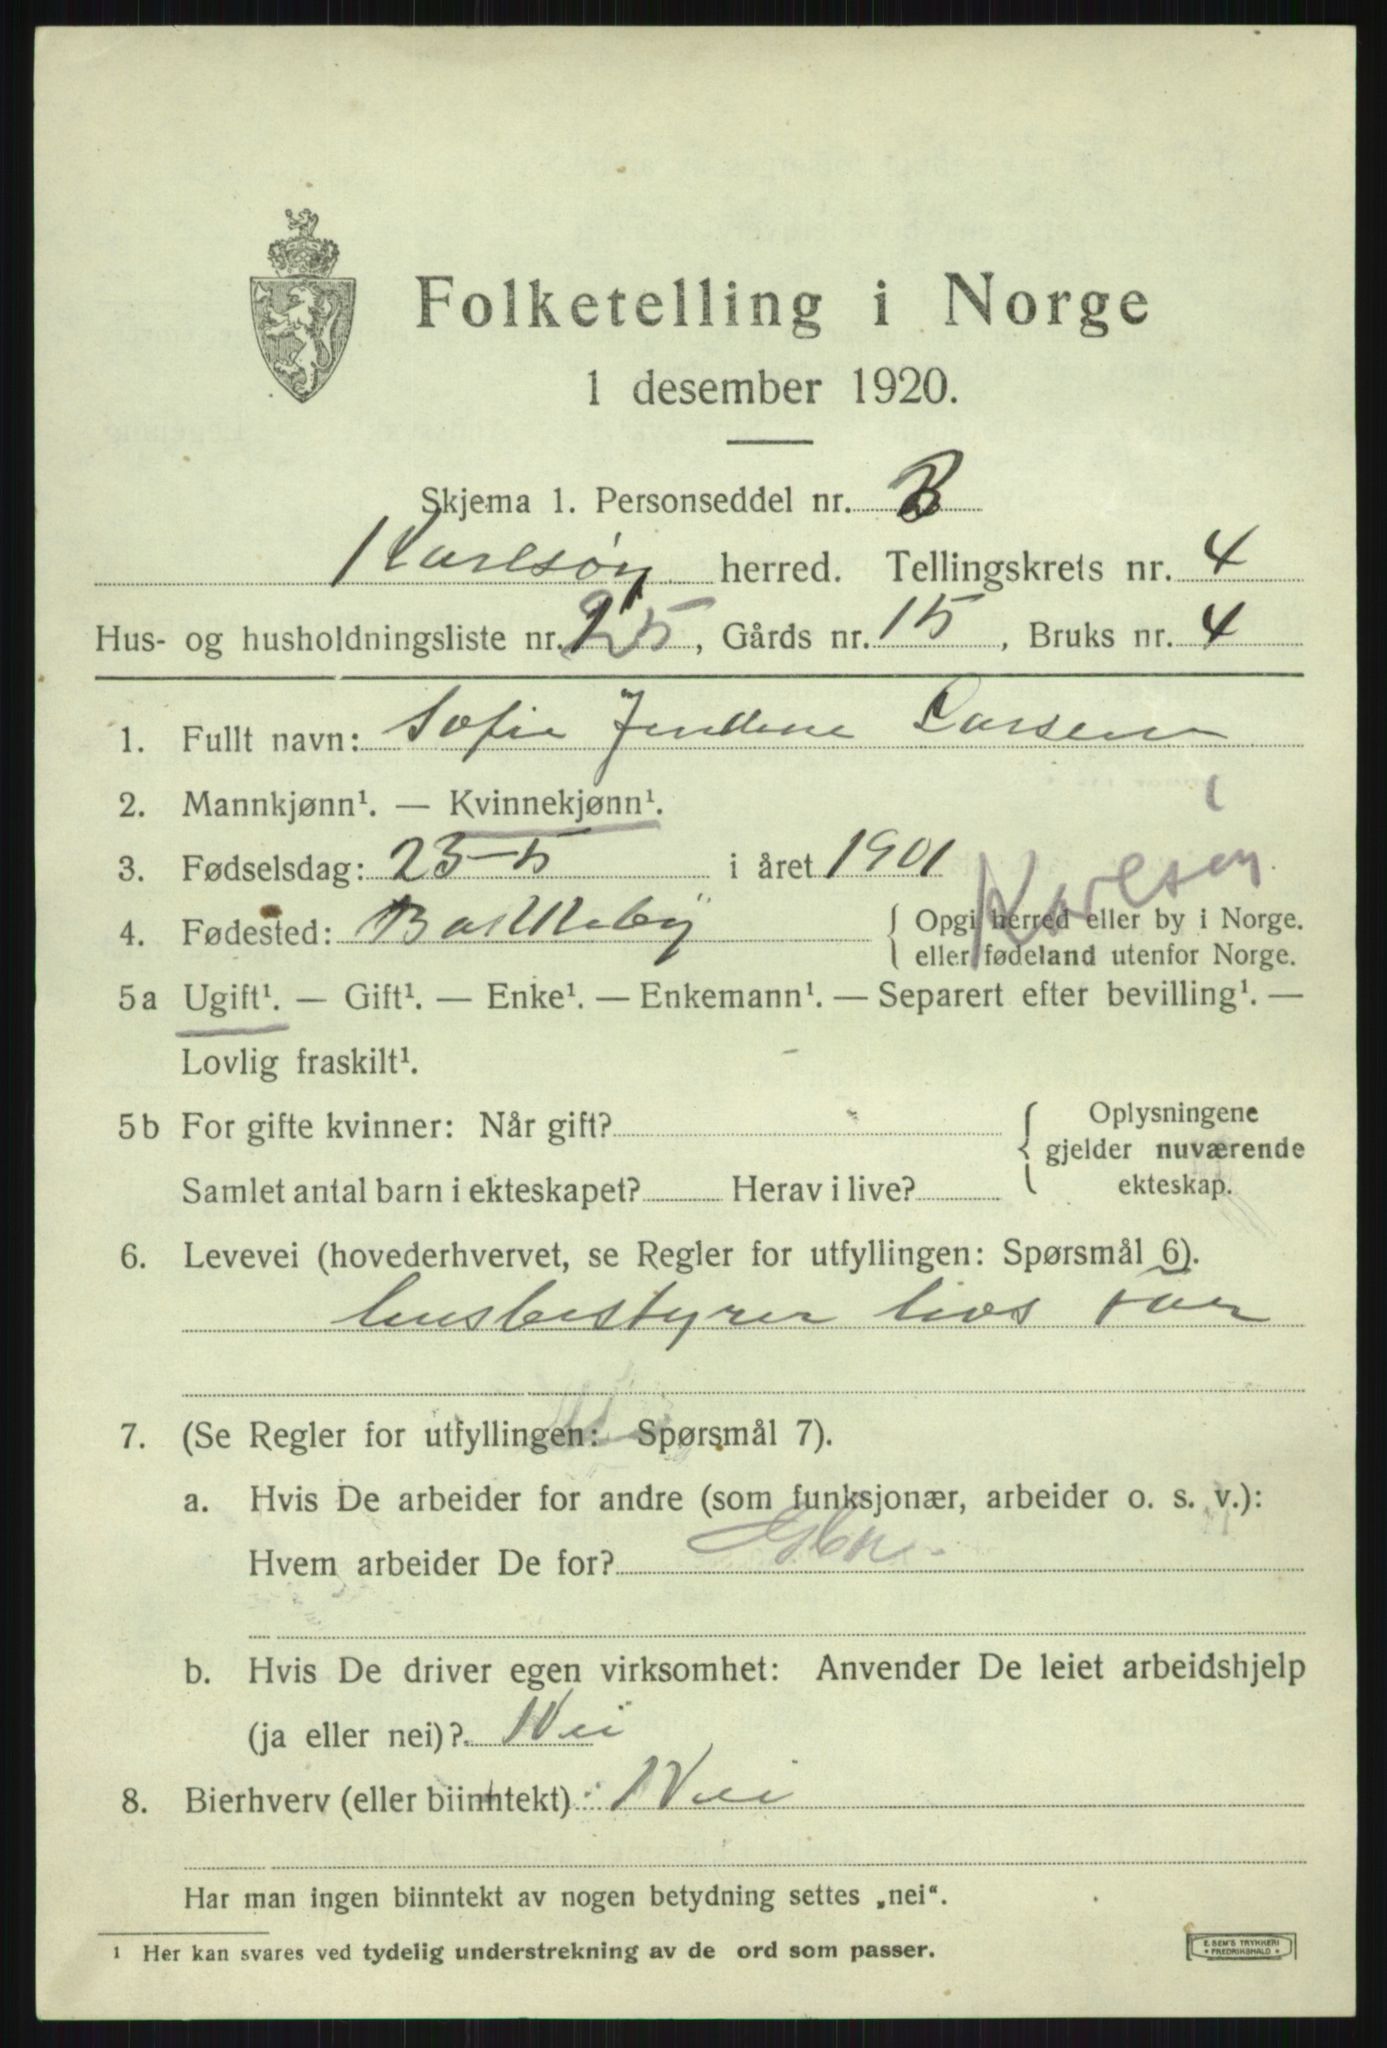 Folketelling i Norge
1 desember 1920.
Skjema 1. Personseddel nr.
Karlsøy herred. Tellingskrets nr. 4
Hus- og husholdningsliste nr. 25, Gårds nr. 15, Bruks nr. 4
1. Fullt navn: Sofie Larsen
2. Mannkjønn¹. — Kvinnekjønn¹.
3. Fødselsdag: 23-5 i året 1901
Karlsøy
4. Fødested: { Opgi herred eller by i Norge.
eller fødeland utenfor Norge.
5a Ugift¹. — Gift¹. — Enke¹. — Enkemann¹. — Separert efter bevilling¹. —
Lovlig fraskilt¹.
5b For gifte kvinner: Når gift? { Oplysningene
gjelder nuværende
ekteskap.
Samlet antal barn i ekteskapet? Herav i live?
6. Levevei (hovederhvervet, se Regler for utfyllingen: Spørsmål 6).
husbestyrer hos
7. (Se Regler for utfyllingen: Spørsmål 7).
a. Hvis De arbeider for andre (som funksjonær, arbeider o. s. v.):
Hvem arbeider De for?
b. Hvis De driver egen virksomhet: Anvender De leiet arbeidshjelp
(ja eller nei)? Nei
8. Bierhverv (eller biinntekt) : Nei
Har man ingen biinntekt av nogen betydning settes „nei“.
¹ Her kan svares ved tydelig understrekning av de ord som passer.
E. SEM'S TRYKKERI
• FREDRIKSHALD •